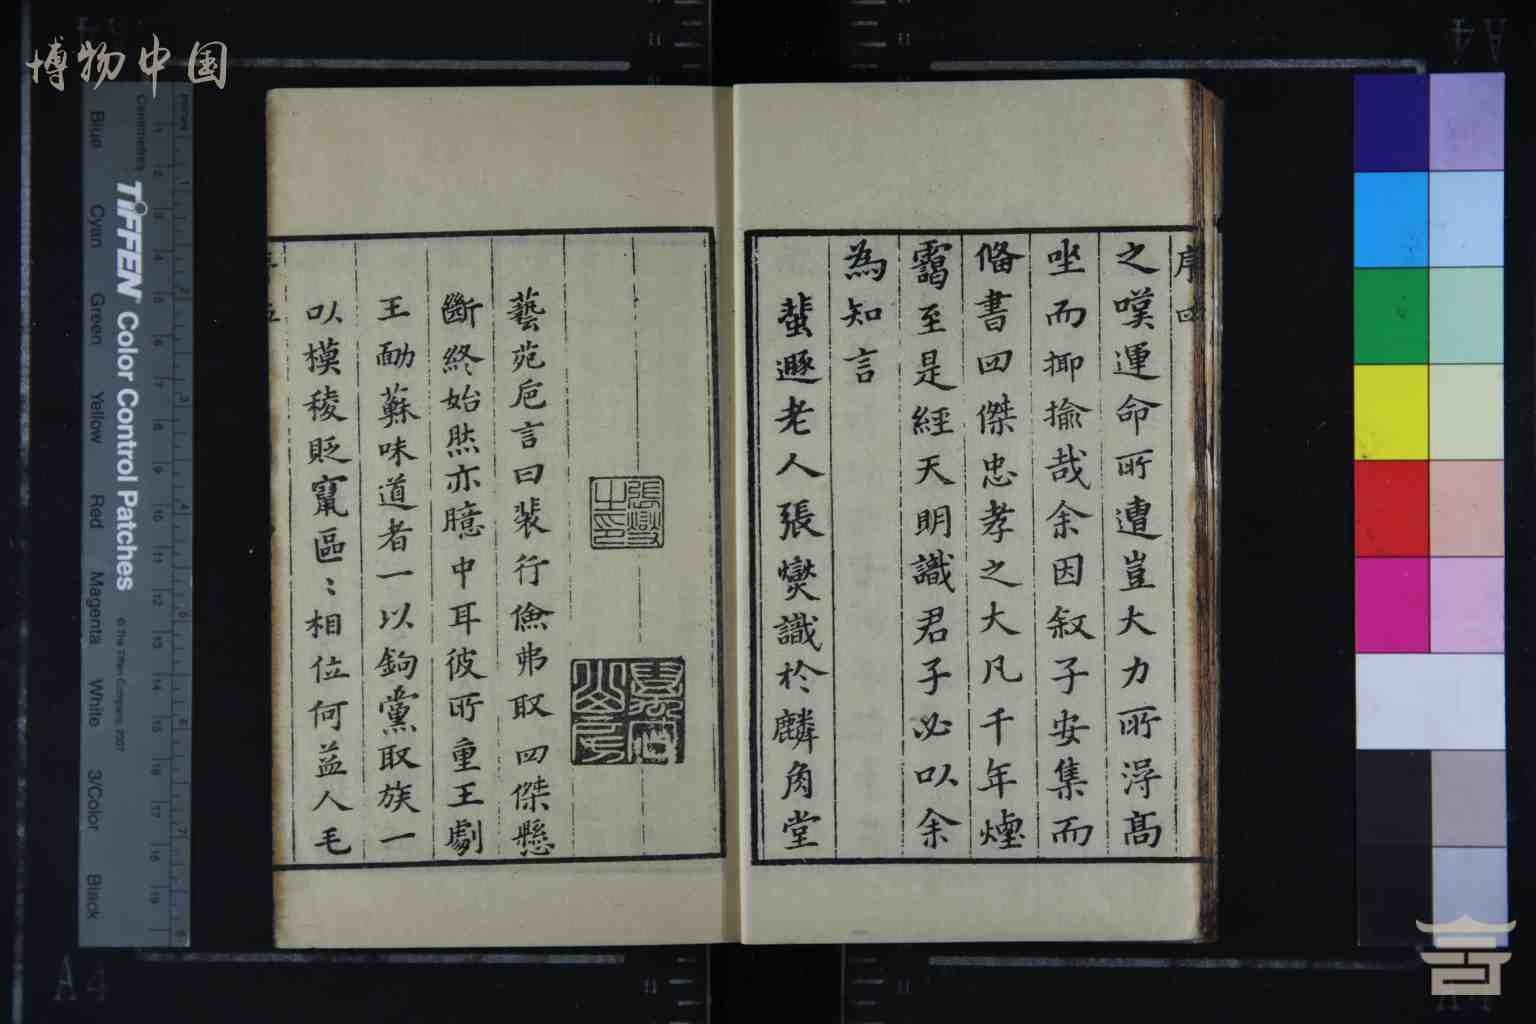 博物中国
序四
之嘆運命所遭豈大力所淂髙
坐而揶揄哉余因叙子安集而
俻書四傑忠孝之大凡千年煙
靄至是經天明識君子必以余
為知言
蜚遯老人張燮識於麟角堂
張燮之印
藝苑巵言曰裴行儉弗取四傑懸
斷終始然亦臆中耳彼所重王劇
王勔蘇味道者一以鉤黨取族一
以模稜貶竄區〻相位何益人毛
TIFFEN Color Control Patches
© The Tiffen Company, 2007
Centimetres
Blue
Cyan
Green
Yellow
Red
Magenta
White
3/Color
Black
A4